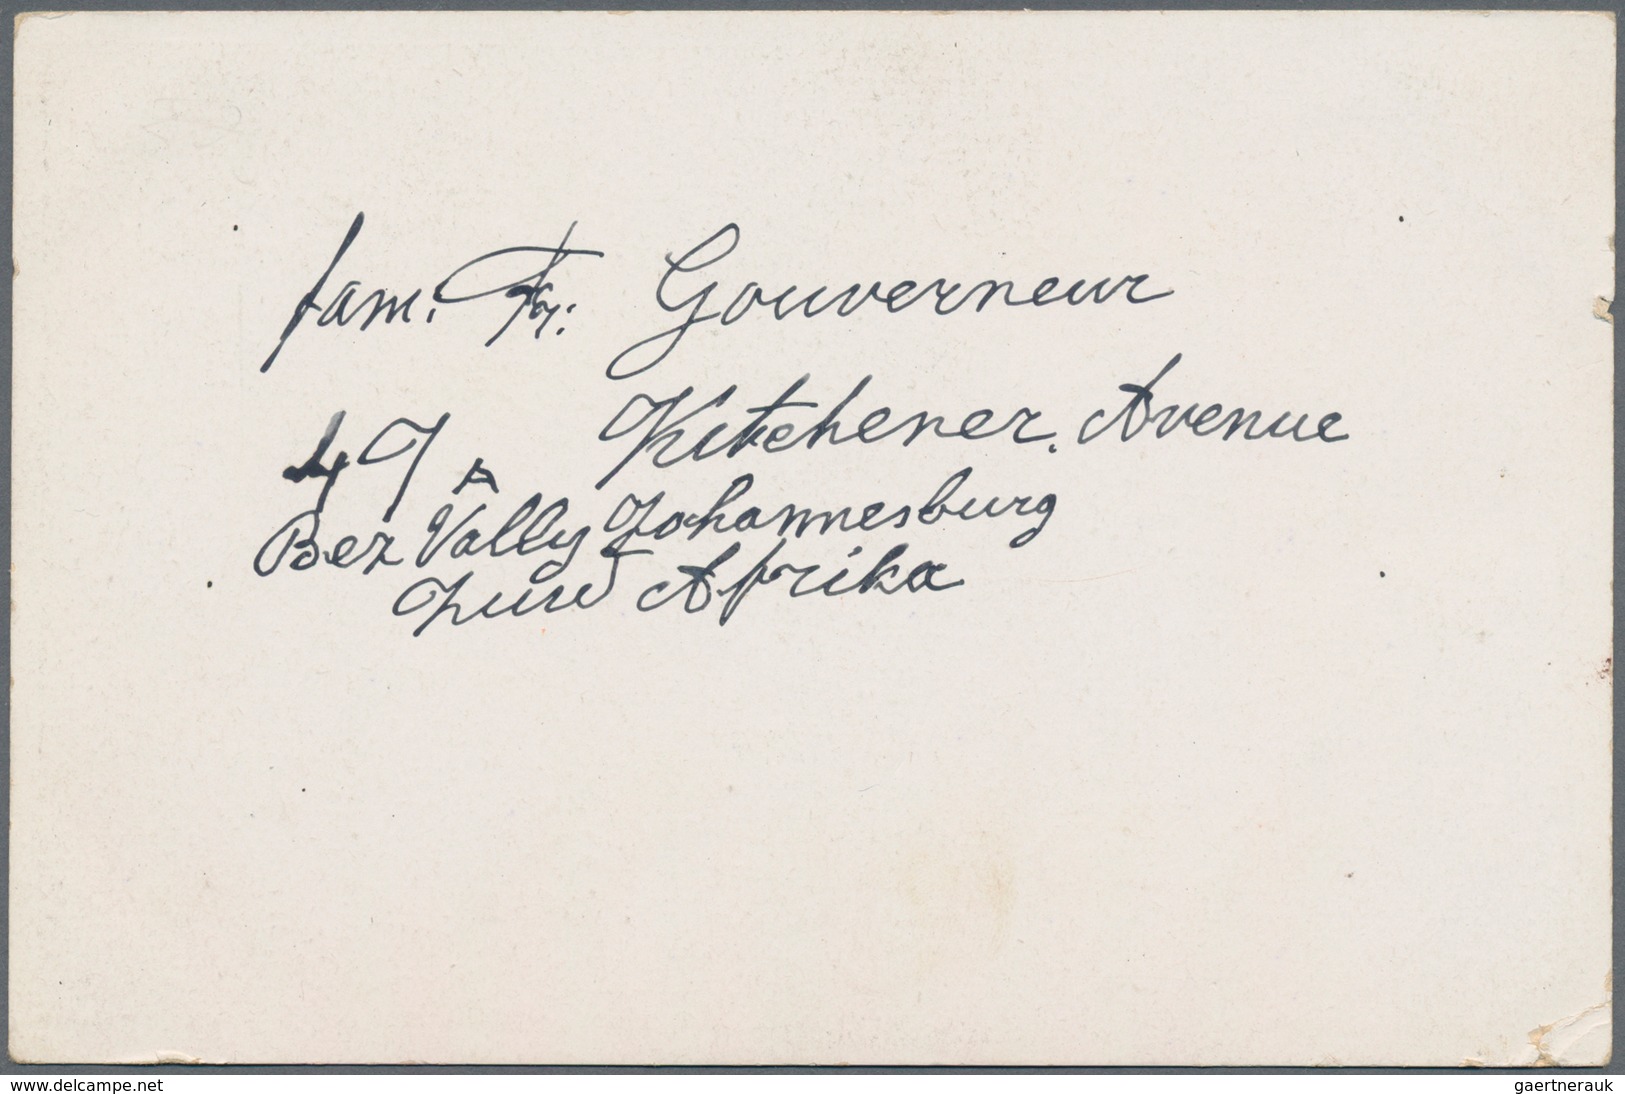 fam. Fr. Gouverneur
47A Kitchener. Avenue
Bez Vally Johannesburg
Zuid Afrika
www.delcampe.net
gaertnerauk